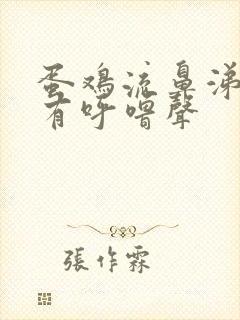 蛋鸡流鼻涕
有呼噜聲
張作霖